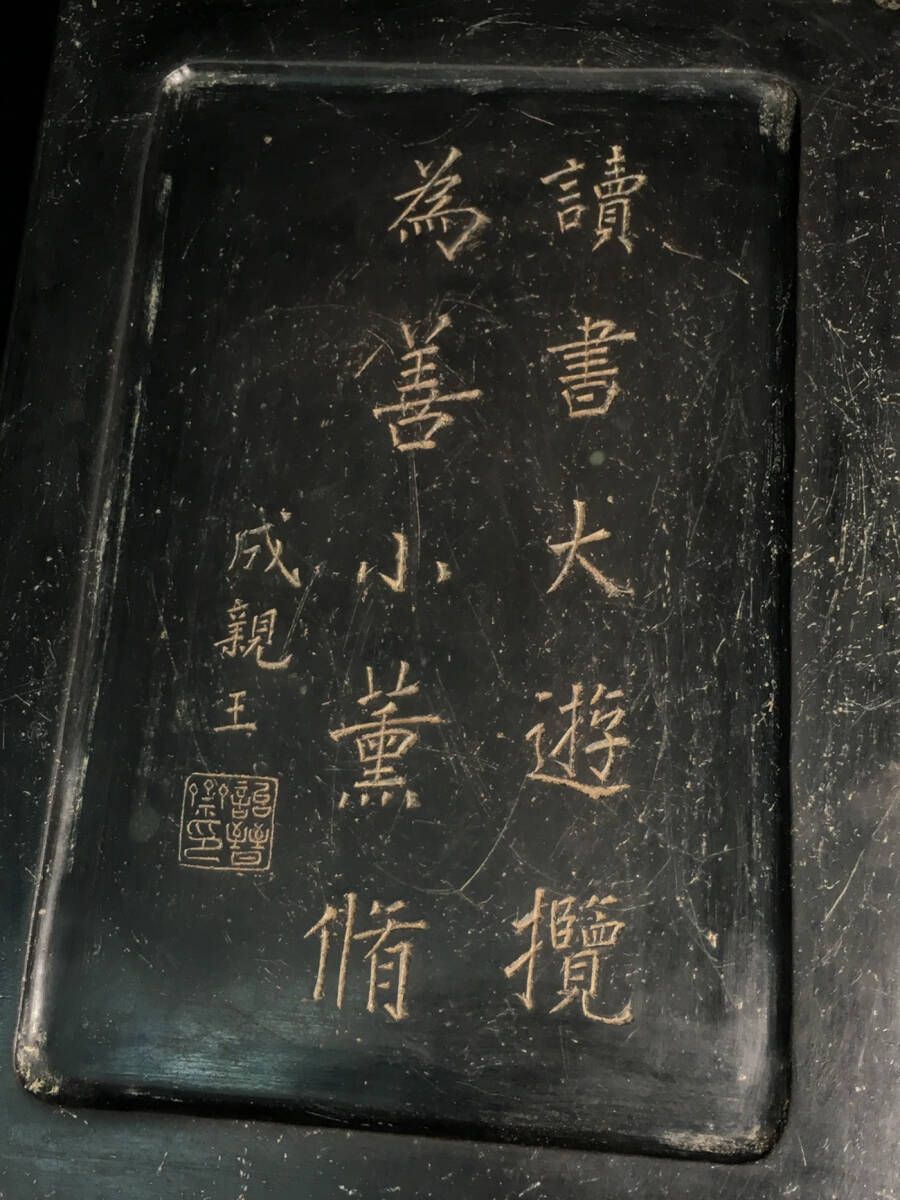 讀書大遊攬
為善小薰脩
成親王
詒晉齋印